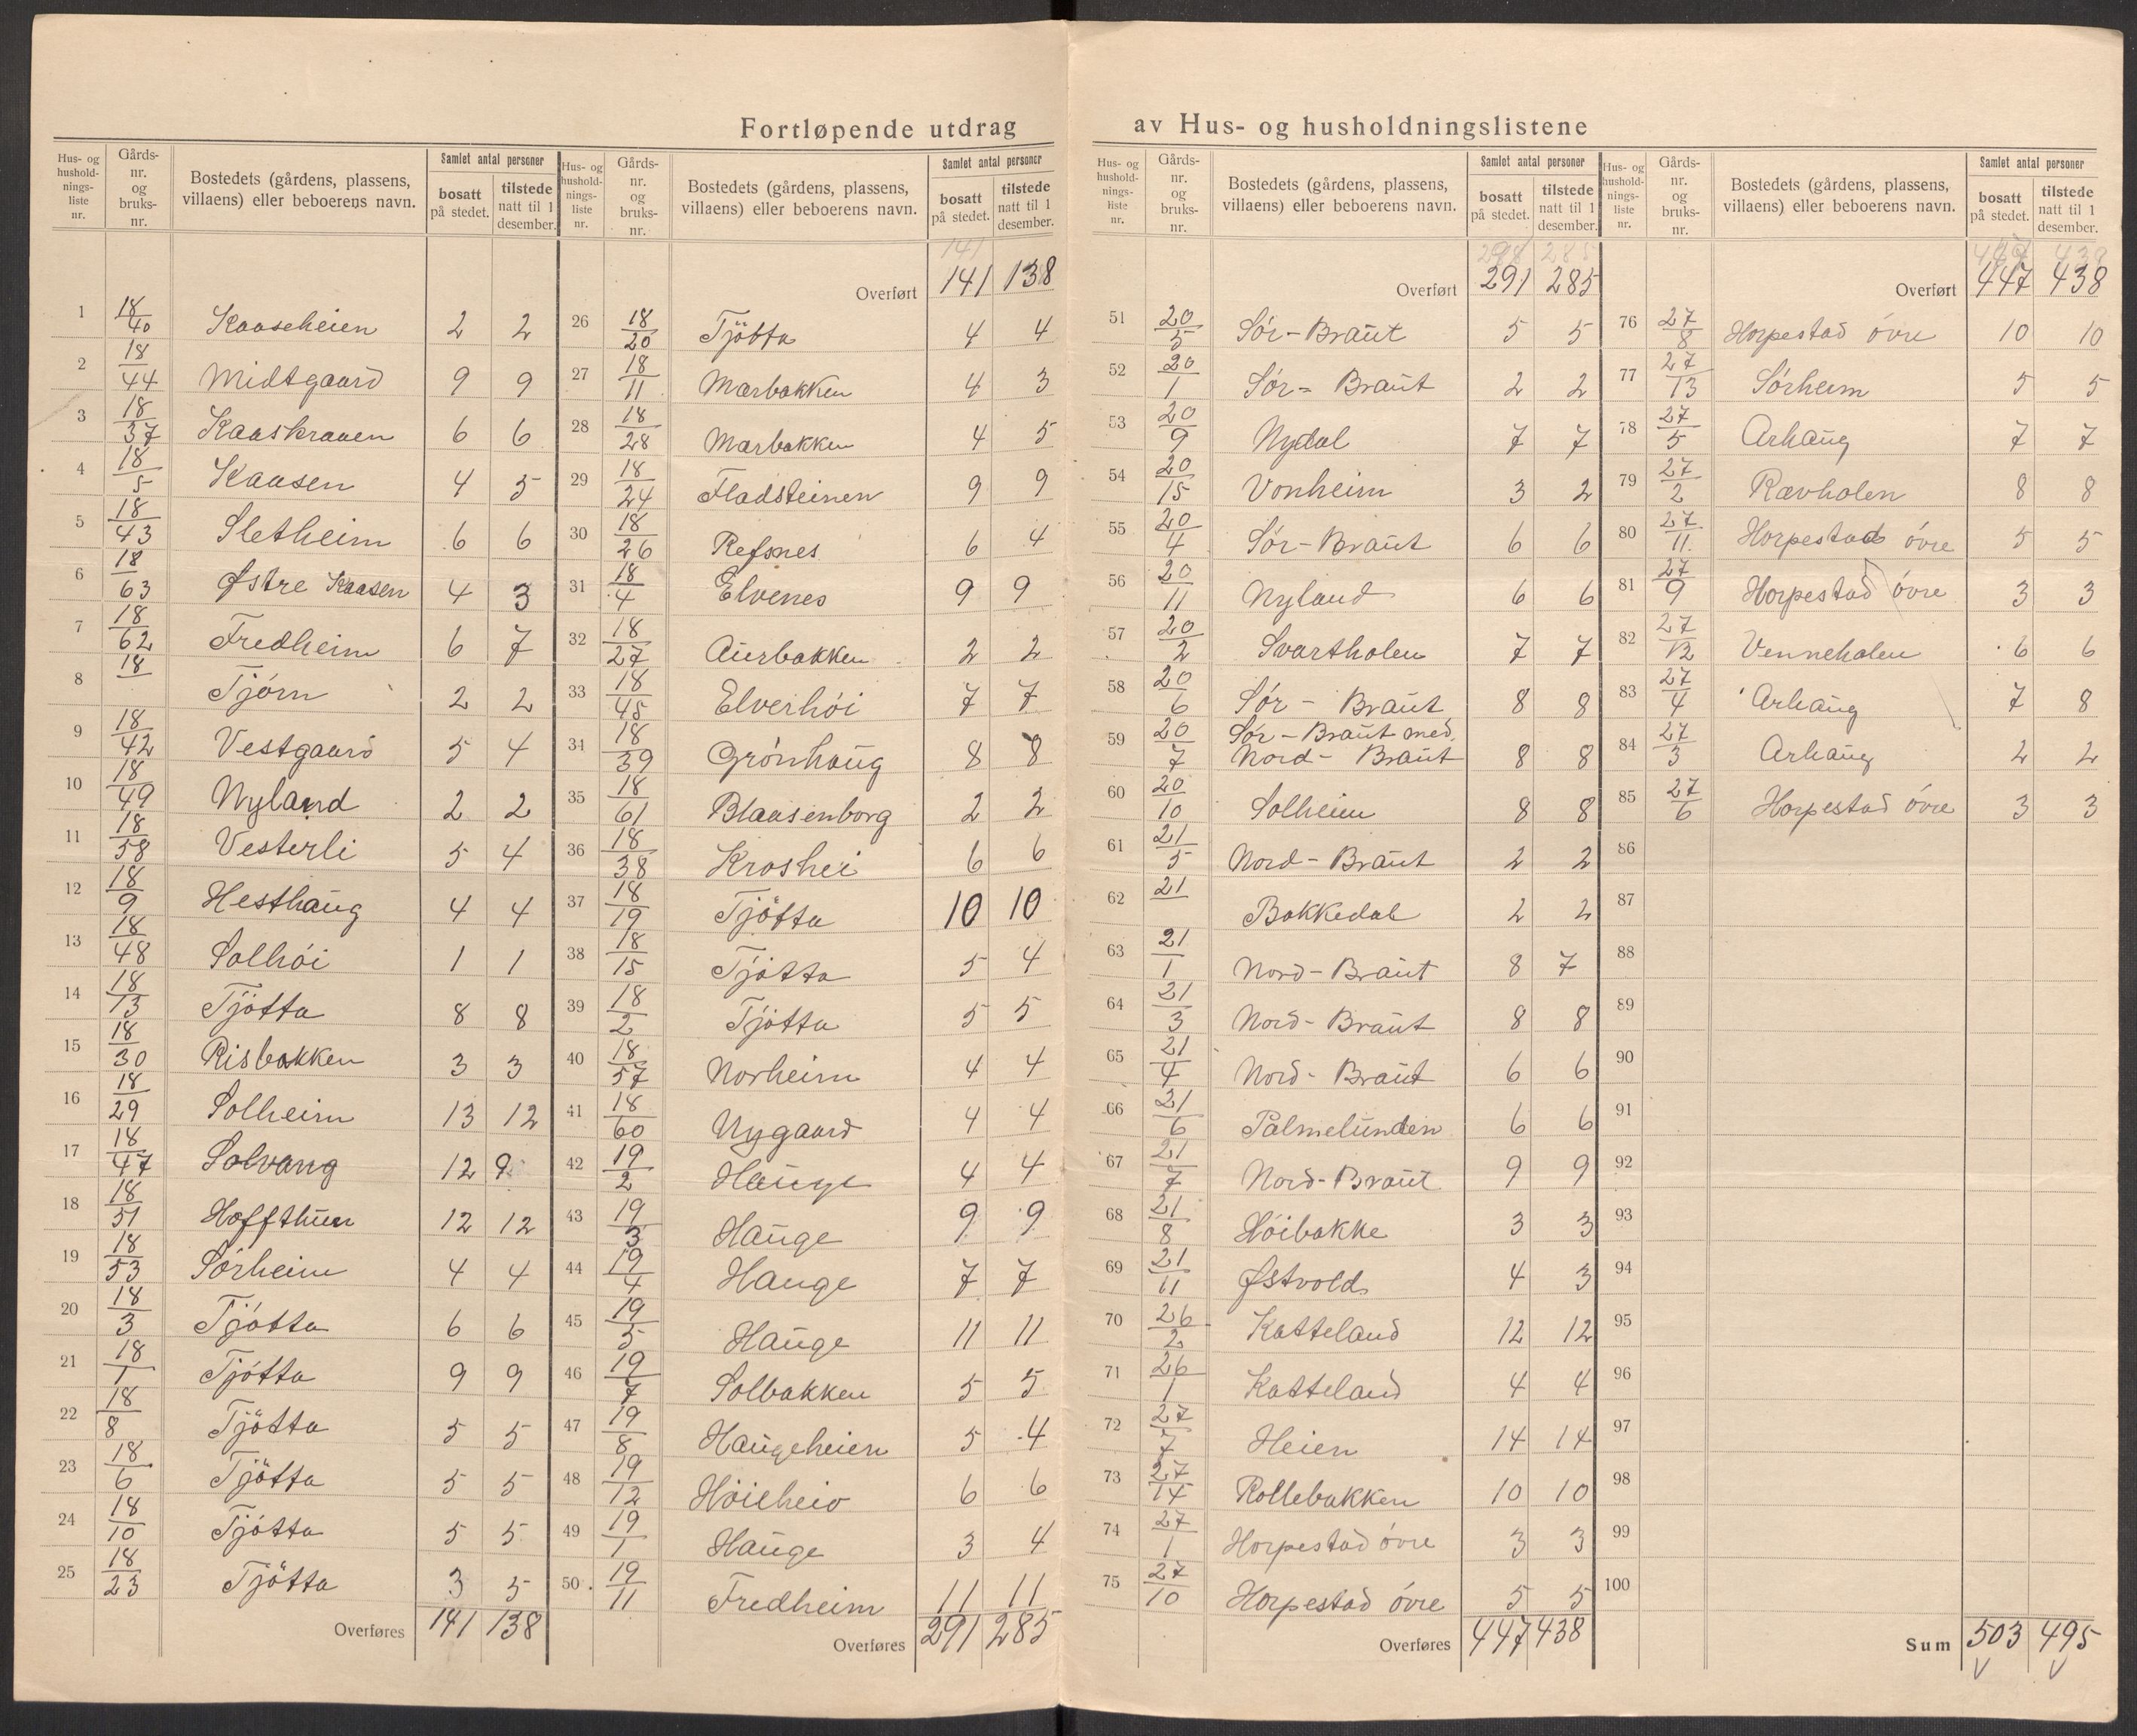 Fortløpende utdrag av Hus- og husholdningslistene
Hus- og hushold-nings-liste nr. | Gårds-nr. og bruks-nr. | Bostedets (gårdens, plassens, villaens) eller beboerens navn. | Samlet antal personer | bosatt på stedet. | tilstede natt til 1 desember.
1 18/40 Kaaseheien 2 2
2 18/44 Midtgaard 9 9
3 18/37 Kaaskraaen 6 6
4 18/5 Kaasen 4 5
5 18/43 Sletheim 6 6
6 18/63 Østre Kaasen 4 3
7 18/62 Fredheim 6 7
8 18/ Tjörn 2 2
9 18/42 Vestgaard 5 4
10 18/49 Nyland 2 2
11 18/58 Vesterli 5 4
12 18/9 Hesthaug 4 4
13 18/48 Solhöi 1 1
14 18/13 Tjötta 8 8
15 18/30 Risbakken 3 3
16 18/29 Solheim 13 12
17 18/47 Solvang 12 9
18 18/51 Hoffthun 12 12
19 18/53 Sörheim 4 4
20 18/3 Tjötta 6 6
21 18/1 Tjötta 9 9
22 18/8 Tjötta 5 5
23 18/6 Tjötta 5 5
24 18/10 Tjötta 5 5
25 18/23 Tjötta 3 5
Overføres 141 138
Hus- og hushold-nings-liste nr. | Gårds-nr. og bruks-nr. | Bostedets (gårdens, plassens, villaens) eller beboerens navn. | Samlet antal personer | bosatt på stedet. | tilstede natt til 1 desember.
141
Overført 141 138
26 18/20 Tjötta 4 4
27 18/11 Marbakken 4 3
28 18/28 Marbakken 4 5
29 18/24 Fladsteinen 9 9
30 18/26 Refsnes 6 4
31 18/4 Elvenes 9 9
32 18/27 Aurbakken 2 2
33 18/45 Elverhöi 7 7
34 18/39 Grönhaug 8 8
35 18/61 Blaasenborg 2 2
36 18/38 Kroshei 6 6
37 18/19 Tjötta 10 10
38 18/15 Tjötta 5 4
39 18/2 Tjötta 5 5
40 18/57 Norheim 4 4
41 18/60 Nygaard 4 4
42 19/2 Hauge 4 4
43 19/3 Hauge 9 9
44 19/4 Hauge 7 7
45 19/5 Hauge 11 11
46 19/7 Solbakken 5 5
47 19/8 Haugeheien 5 4
48 19/12 6 6
49 19/1 Hauge 3 4
50 19/11 Fredheim 11 11
Overføres 291 285
Hus- og hushold-nings-liste nr. | Gårds-nr. og bruks-nr. | Bostedets (gårdens, plassens, villaens) eller beboerens navn. | Samlet antal personer | bosatt på stedet. | tilstede natt til 1 desember.
285
Overført 291 285
51 20/5 Sör-Braut 5 5
52 20/1 Sör- Braut 2 2
53 20/9 Nydal 7 7
54 20/15 Vonheim 3 2
55 20/4 Sör-Braut 6 6
56 20/11 Nyland 6 6
57 20/2 Svartholen 7 7
58 20/6 Sör - Braut 8 8
59 20/7 Sör-Braut med.
Nord- Braut 8 8
60 20/10 Solheim 8 8
61 21/5 Nord-Braut 2 2
62 21/ Bakkedal 2 2
63 21/1 Nord-Braut 8 7
64 21/3 Nord-Braut 8 8
65 21/4 Nord-Braut 6 6
66 21/6 Palmelunden 6 6
67 21/7 Nord-Braut 9 9
68 21/8 Höibakke 3 3
69 21/11 Østvold 4 3
70 26/2 Katteland 12 12
71 26/1 Katteland 4 4
72 27/7 Heien 14 14
73 27/14 Rollebakken 10 10
74 27/1 Horpestad övre 3 3
75 27/10 Horpestad övre 5 5
Overføres 447 438
Hus- og hushold-nings-liste nr. | Gårds-nr. og bruks-nr. | Bostedets (gårdens, plassens, villaens) eller beboerens navn. | Samlet antal personer | bosatt på stedet. | tilstede natt til 1 desember.
438
Overført 447 438
76 27/8 Horpestad övre 10 10
77 27/13 Sörheim 5 5
78 27/5 Arhaug 7 7
79 27/2 Ravholen 8 8
80 27/11 Horpestad övre 5 5
81 27/9 Horpestad övre 3 3
82 27/12 Venneholen 6 6
83 27/4 Arhaug 7 8
84 27/3 Arhaug 2 2
85 27/6 Horpestad övre 3 3
86
87
88
89
90
91
92
93
94
95
96
97
98
99
100
Sum 503 495